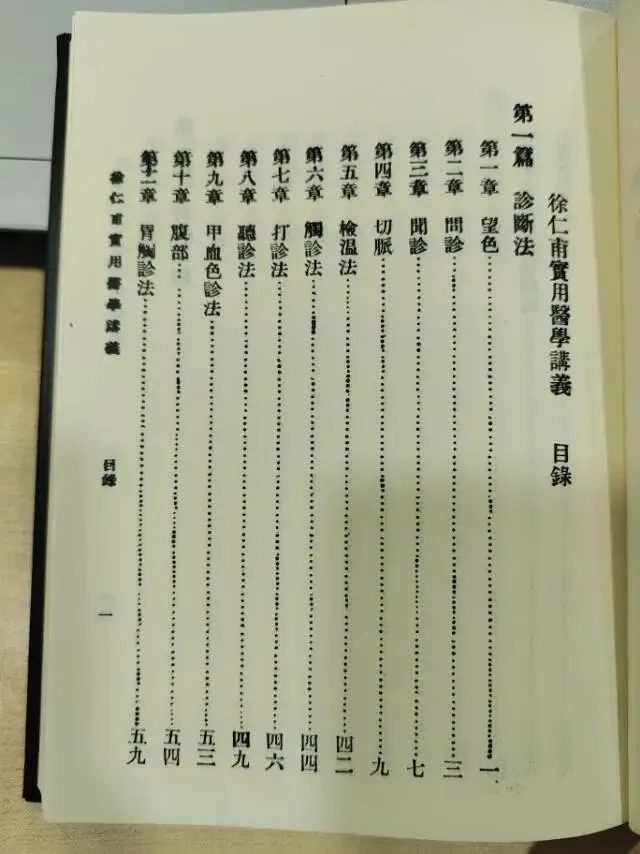 徐仁甫實用醫學講義 目錄
第一篇 診斷法
第一章 望色 一
第二章 問診 三
第三章 聞診 七
第四章 切脈 九
第五章 檢温法 四二
第六章 觸診法 四四
第七章 打診法 四六
第八章 聽診法 四九
第九章 甲血色診法 五三
第十章 腹部 五四
第十一章 胃胸診法 五九
徐仁甫實用醫學講義 目錄 一